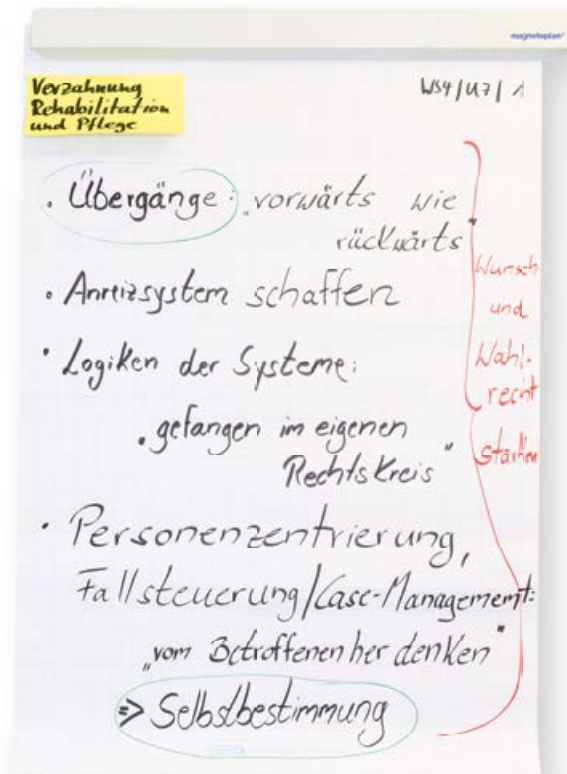 magnetoplan®
Verzahnung
Rehabilitation
und Pflege
WS4/U7/1
• Übergänge: „vorwärts wie
rückwärts"
• Anreizsystem schaffen
• Logiken der Systeme:
„gefangen im eigenen
Rechtskreis"
• Personenzentrierung,
Fallsteuerung/Case-Management:
„vom Betroffenen her denken"
=> Selbstbestimmung
Wunsch
und
Wahl-
recht
stärken